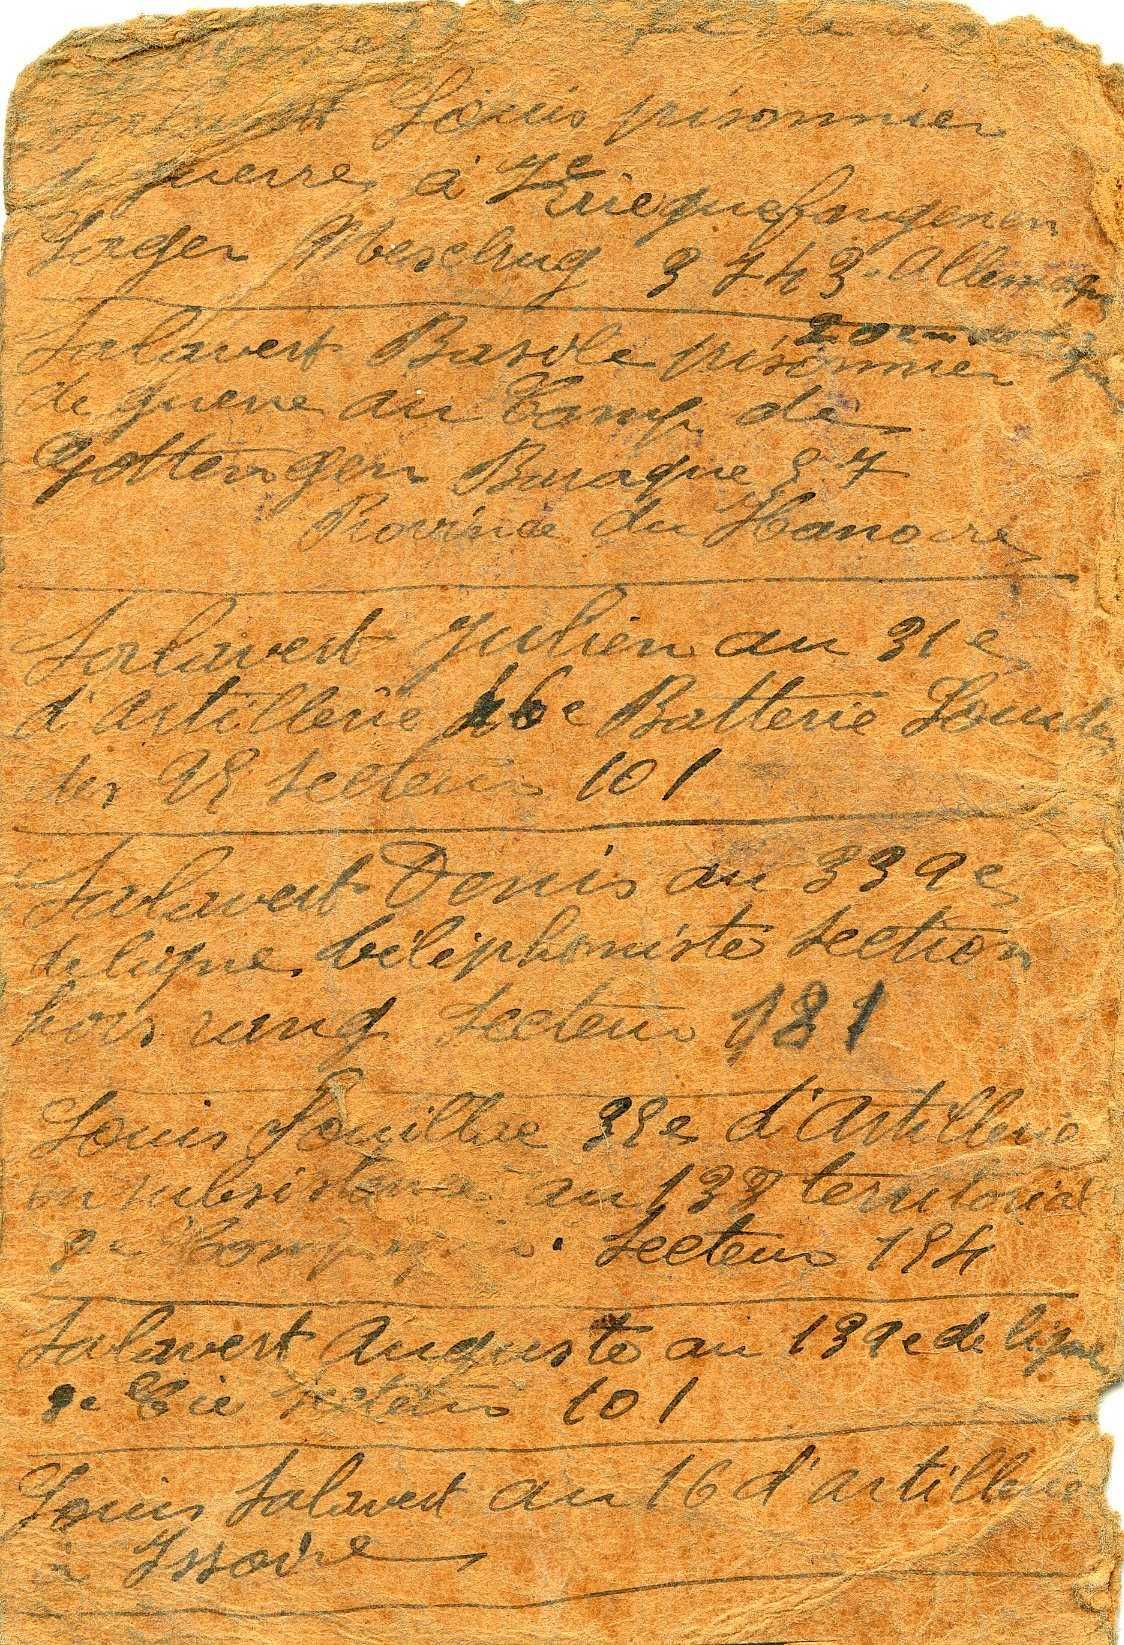 Louis prisonnier
de guerre à Kriequefangenen
Lager Meschug 3743 Allemagne
Salavert Basile prisonnier
de guerre au Camp de
Gottengen Baraque 37
Province du Hanovre
Salavert Julien au 31e
d'Artillerie 46e Batterie
des 95 secteur 101
Salavert Denis au 339e
de ligne téléphoniste section
hors rang secteur 181
Louis d'Artillerie
en subsistance au 139 territorial
Compagnie. Secteur 194
Salavert Auguste au 139e de ligne
9e Cie secteur 101
Louis Salavert au 16 d'artillerie
à Issoire